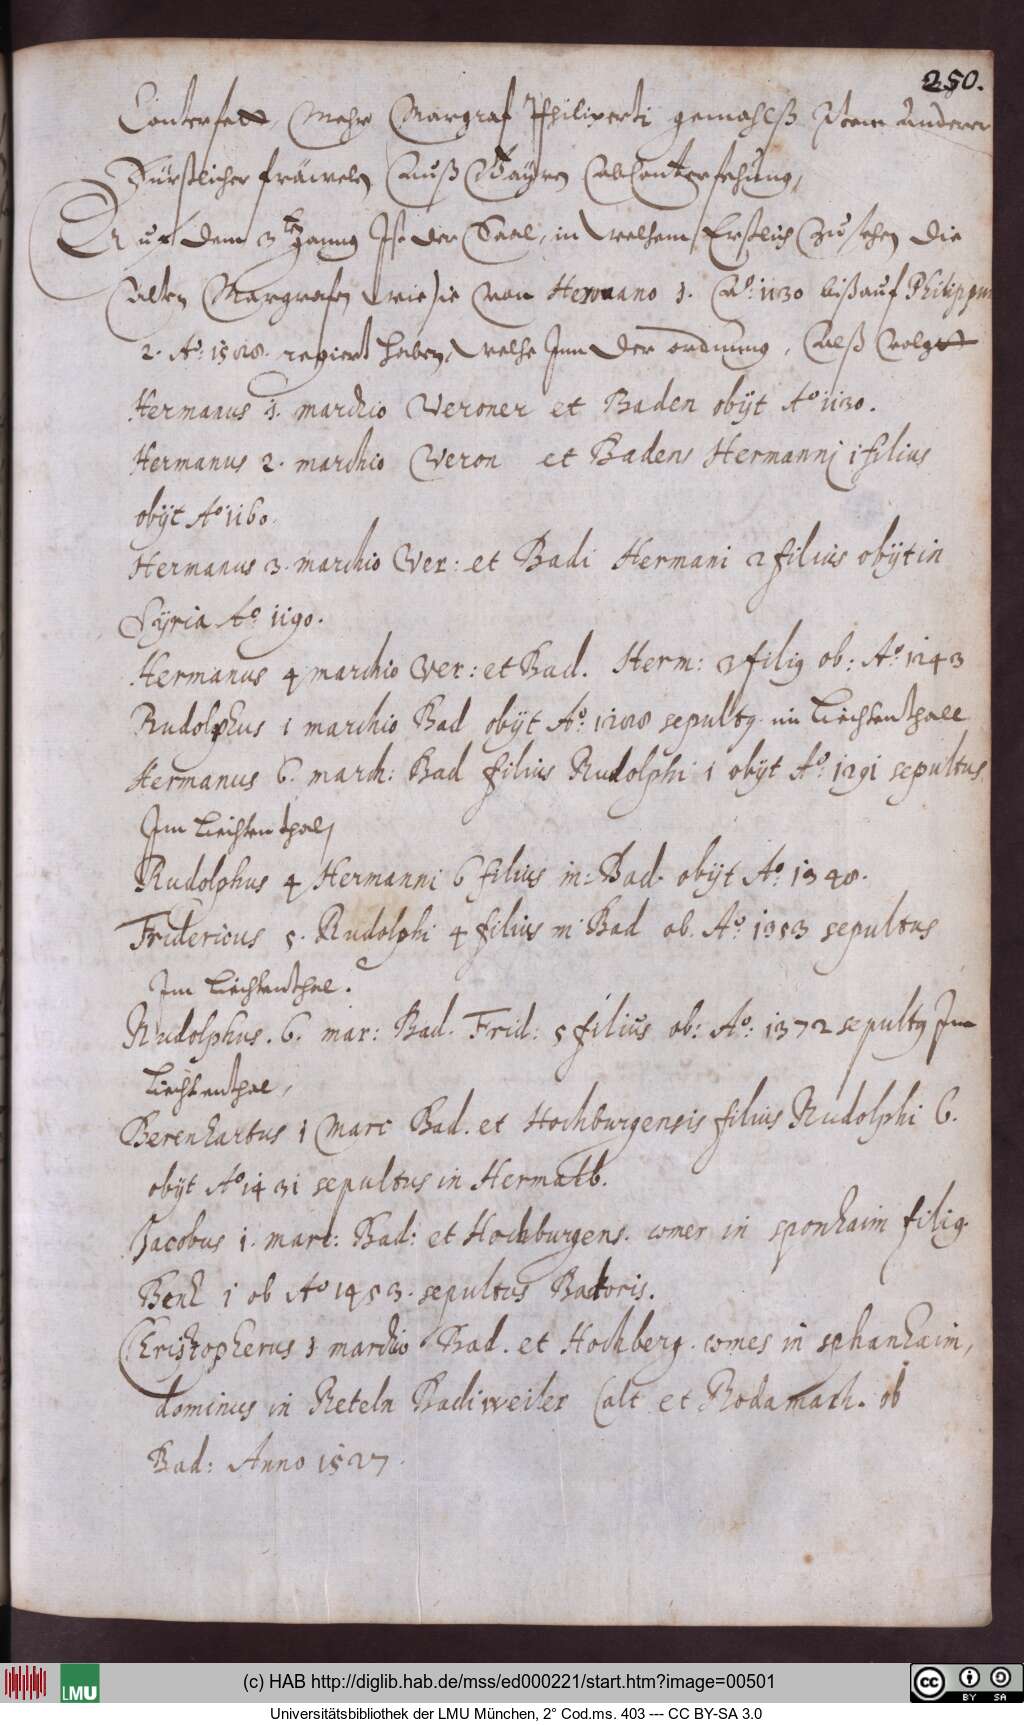 250.
Conterfett, Mehr Margraf Philiperti gemahlß Item Anderer
Fürstlicher fräwelen Auß Bayren Abconterfehung,
Auf dem 3ten gang Ist der Saal, in welhem Erstlich Zu sehen die
Alten Margrafen wie sie von Hermano 1. Ao: 1130 biß auf Philippum
2. Ao: 1588. regiert haben, welhe Inn der ordnung, Alß volgtt
Hermanus 1. marchio Veroner et Baden obijt Ao 1130.
Hermanus 2. marchio Veron et Badens Hermannj 1 filius
obijt Ao 1160.
Hermanus 3. marchio Ver: et Badi Hermani 2 filius obijt in
Syria Ao 1190.
Hermanus 4 marchio Ver: et Bad. Herm: 3 filig ob: Ao: 1243
Rudolphus 1 marchio Bad obijt Ao: 1288 sepultg im Liechtenthall
Hermanus 6. march: Bad filius Rudolphi 1 obijt Ao: 1291 sepultus
Im Liechtenthal,
Rudolphus 4 Hermanni 6 filius m: Bad. obijt Ao: 1348.
Fridericus 5. Rudolphi 4 filius m Bad ob. Ao: 1353 sepultus
Im Liechtenthal.
Rudolphus. 6. mar: Bad. Frid: 5 filius ob: Ao: 1372 sepultg Im
Liechtenthal,
Berenhartus 1 Marc Bad. et Hochburgensis filius Rudolphi 6.
obijt Ao 1431 sepultus in Hermatb.
Jacobus 1. marc: Bad: et Hochburgens. comer in sponhaim filig
Benh 1 ob Ao 1453. sepultus Badoris.
Christopherus 1 marchio Bad. et Hochberg. comes in sphanhaim,
dominus in Reteln Badiweiler Salt et Rodamach. ob
Bad: Anno 1527.
(c) HAB http://diglib.hab.de/mss/ed000221/start.htm?image=00501
LMU
CC BY SA
Universitätsbibliothek der LMU München, 2° Cod.ms. 403 --- CC BY-SA 3.0